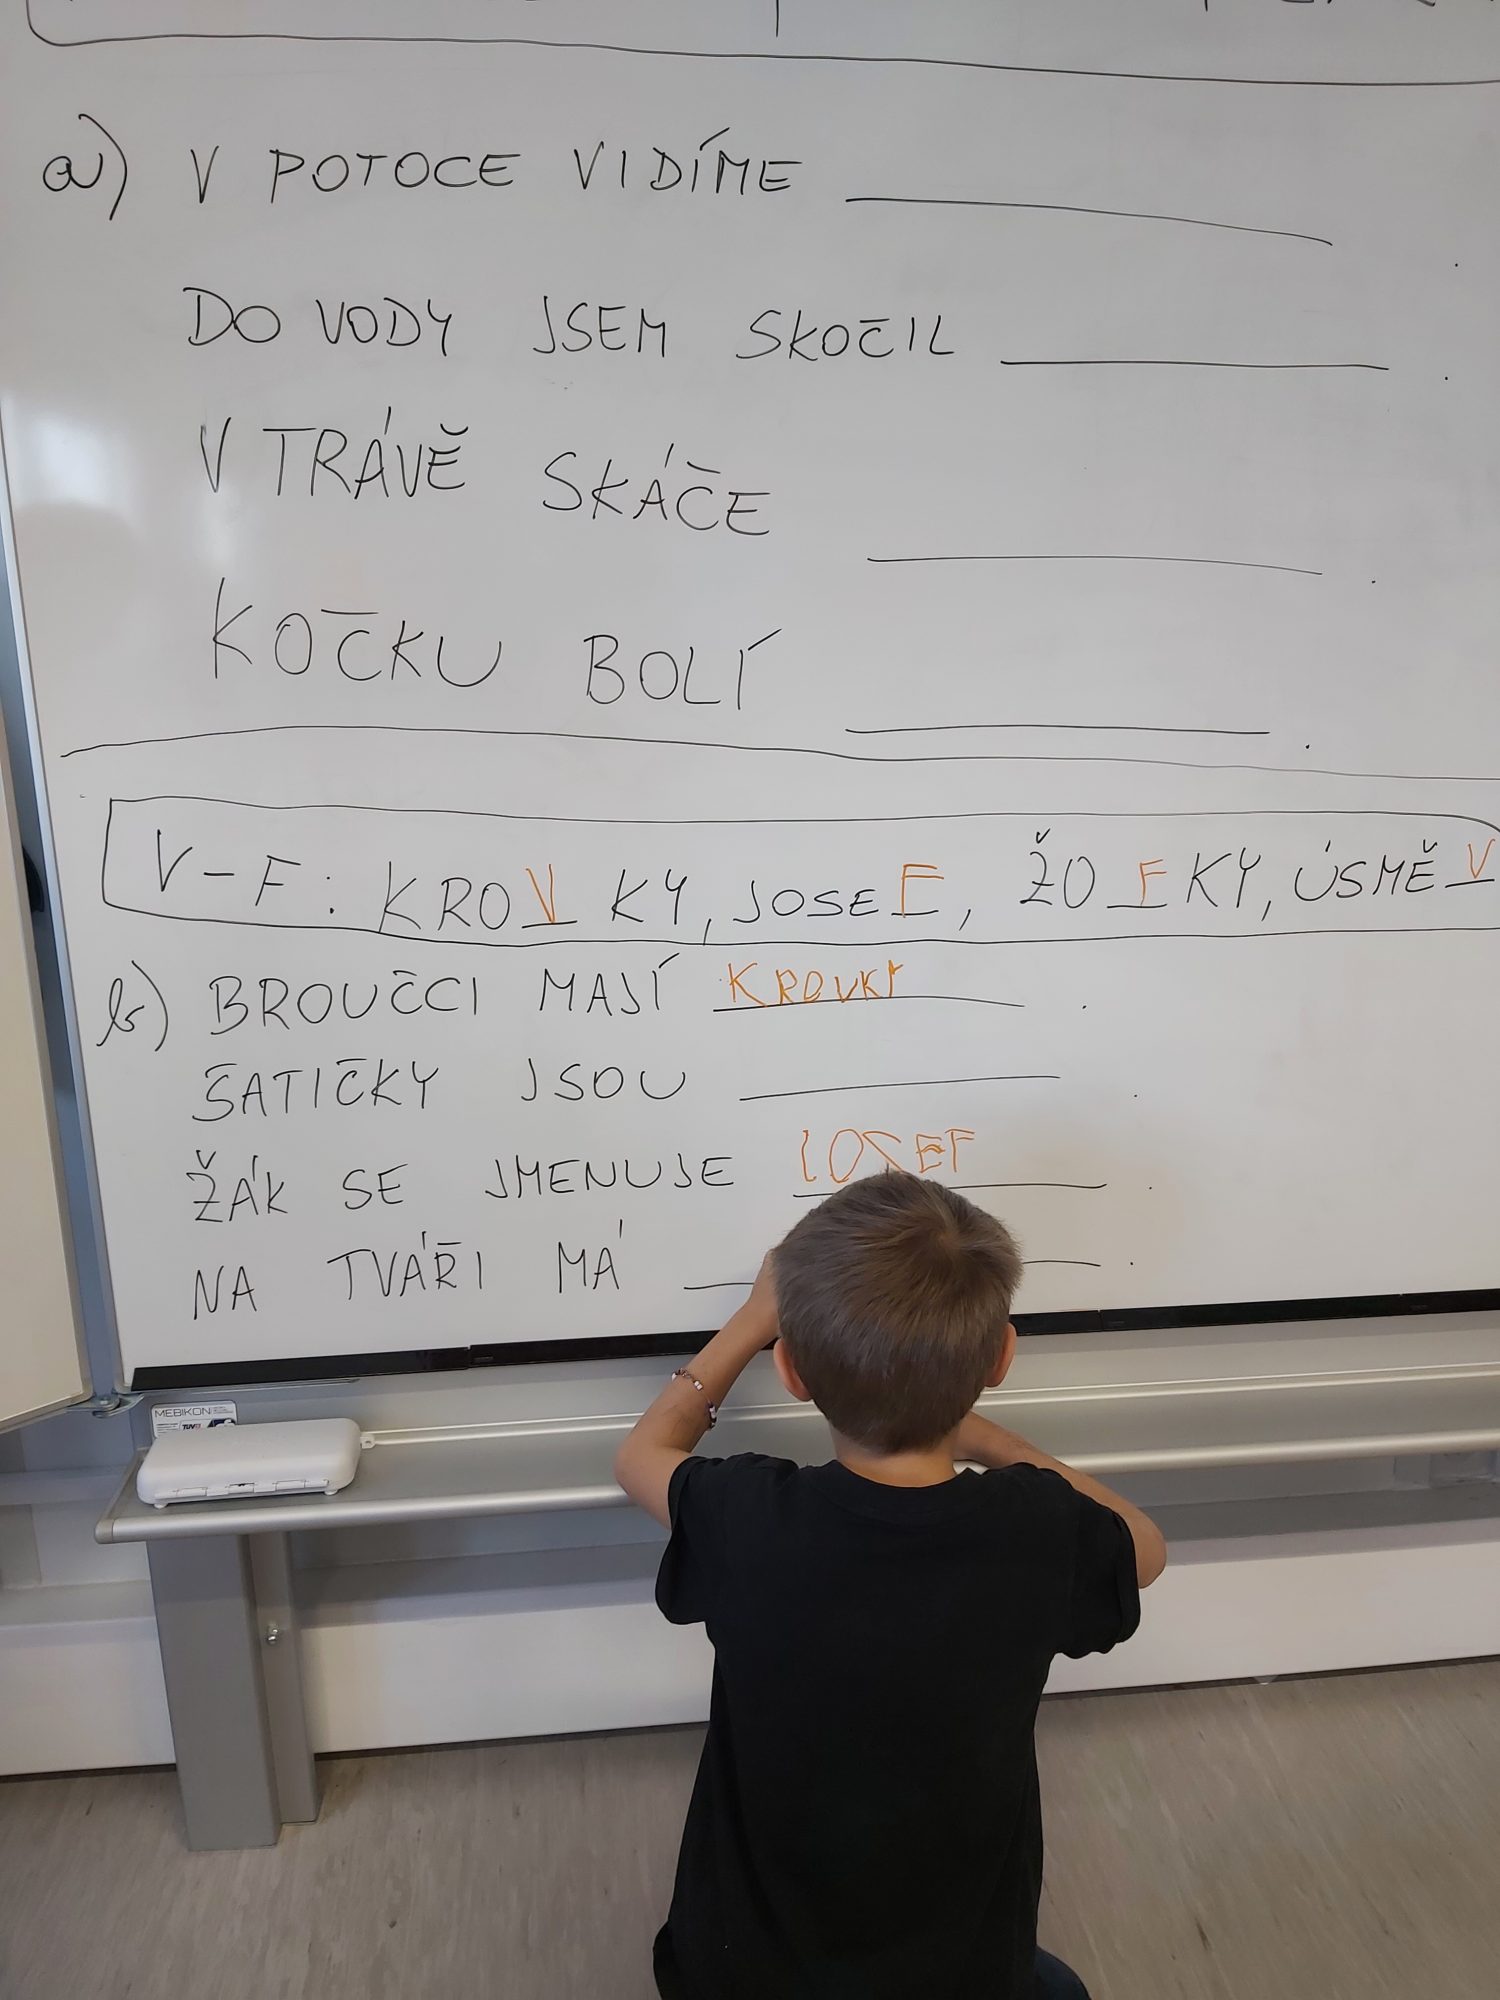 a) V POTOCE VIDÍME
DO VODY JSEM SKOČIL .
V TRÁVĚ SKÁČE .
KOČKU BOLÍ .
V-F: KROVKY, JOSEF, ŽOFKY, ÚSMĚV
b) BROUČCI MAJÍ KROVKY .
ŠATIČKY JSOU .
ŽÁK SE JMENUJE JOSEF .
NA TVÁŘI MÁ .
MEBIKON
TÜV